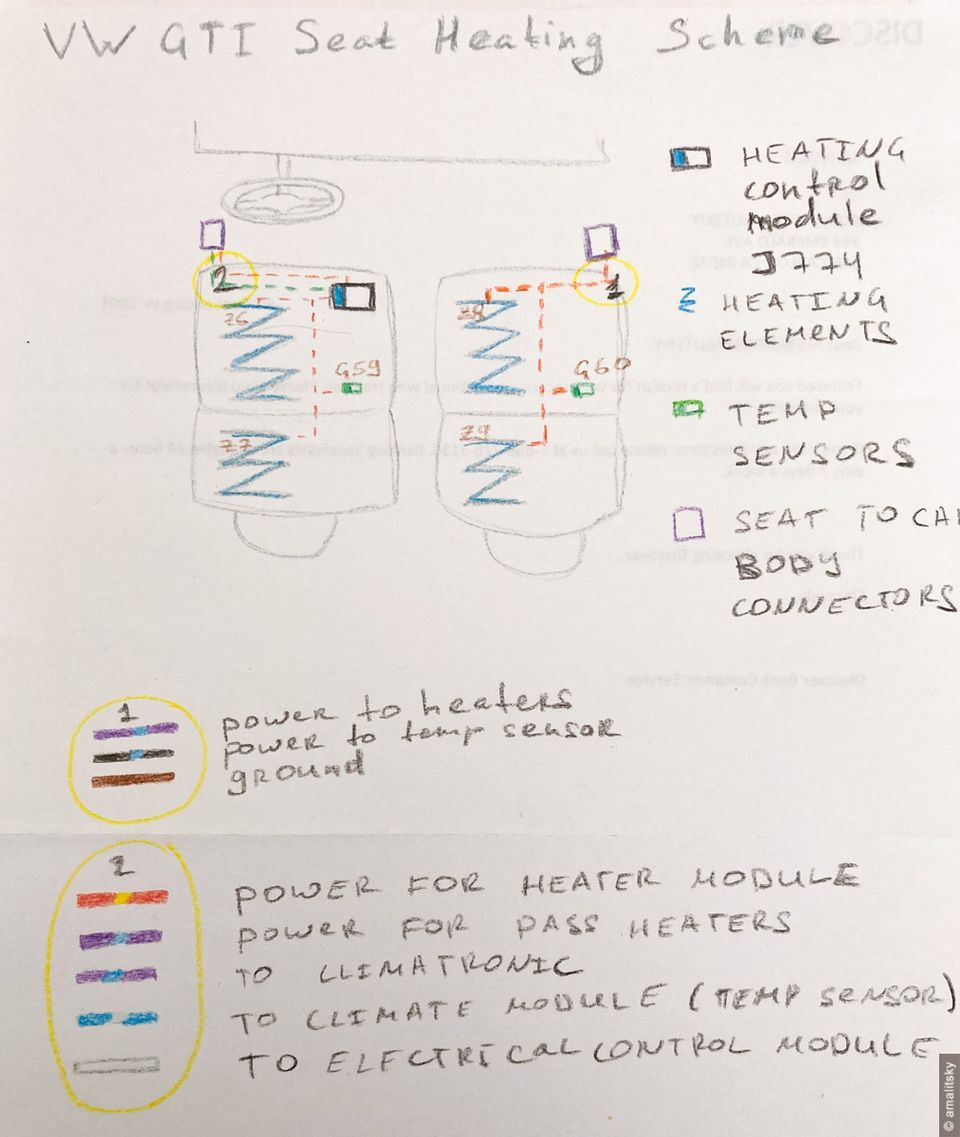 VW GTI Seat Heating Scheme
HEATING
control
module
J774
HEATING
ELEMENTS
TEMP
SENSORS
SEAT TO CAR
BODY
CONNECTORS
2
1
Z6
Z8
G59
G60
Z7
Z9
1
power to heaters
power to temp sensor
ground
2
POWER FOR HEATER MODULE
POWER FOR PASS HEATERS
TO CLIMATRONIC
TO CLIMATE MODULE (TEMP SENSOR)
TO ELECTRICAL CONTROL MODULE
© amalitsky